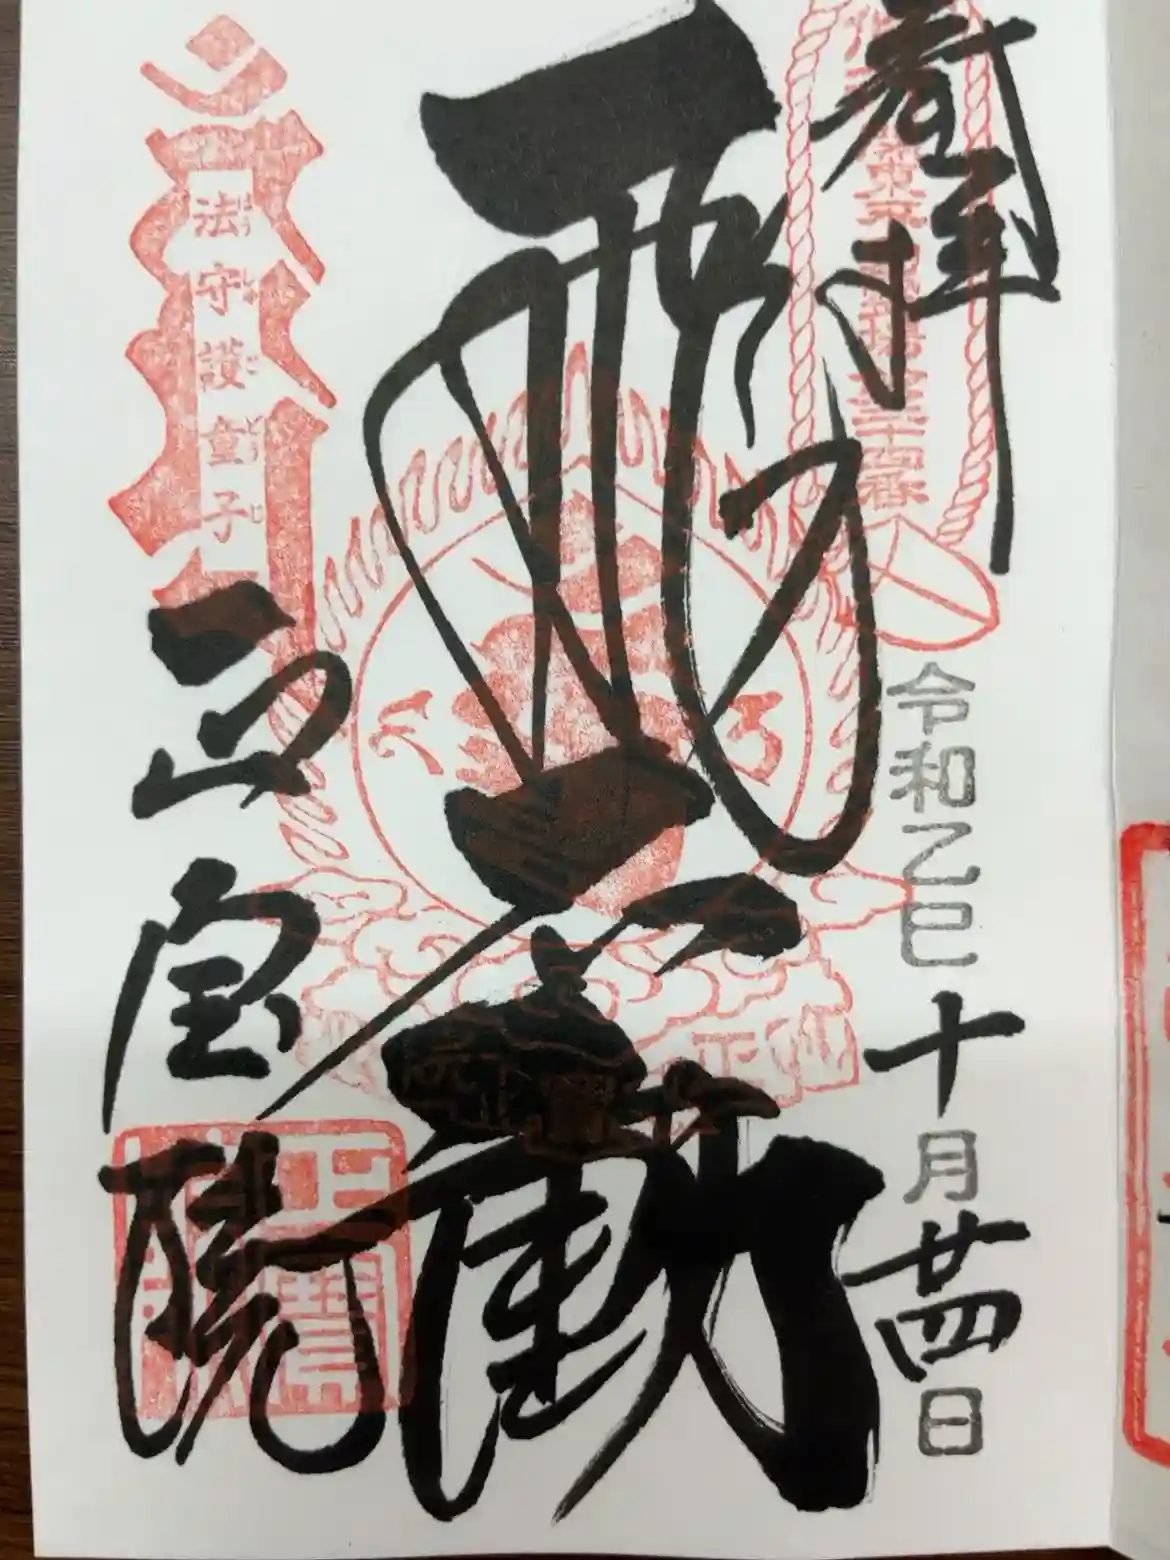 奉拝
令和乙巳
十月廿四日
飛不動
法守護童子
正宝院